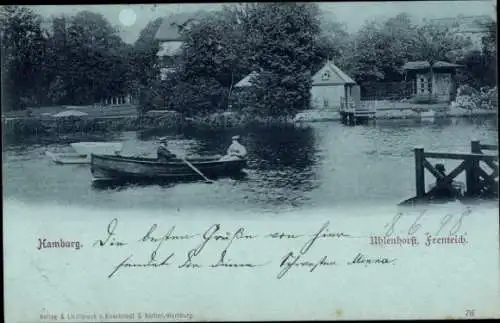 8. 6. 98
Hamburg. Uhlenhorst. Feenteich.
Die besten Grüße von hier
sendet dir deine Schwester Minna.
Verlag & Lichtdruck v. Knackstedt & Näther, Hamburg. 76